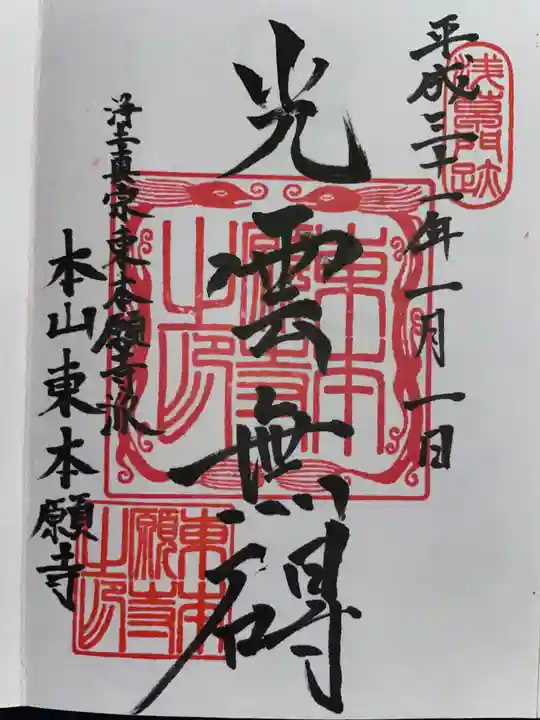 浅草門跡
平成三十一年一月一日
光雲無碍
東本願寺之印
浄土真宗東本願寺派
本山東本願寺
東本願寺之印